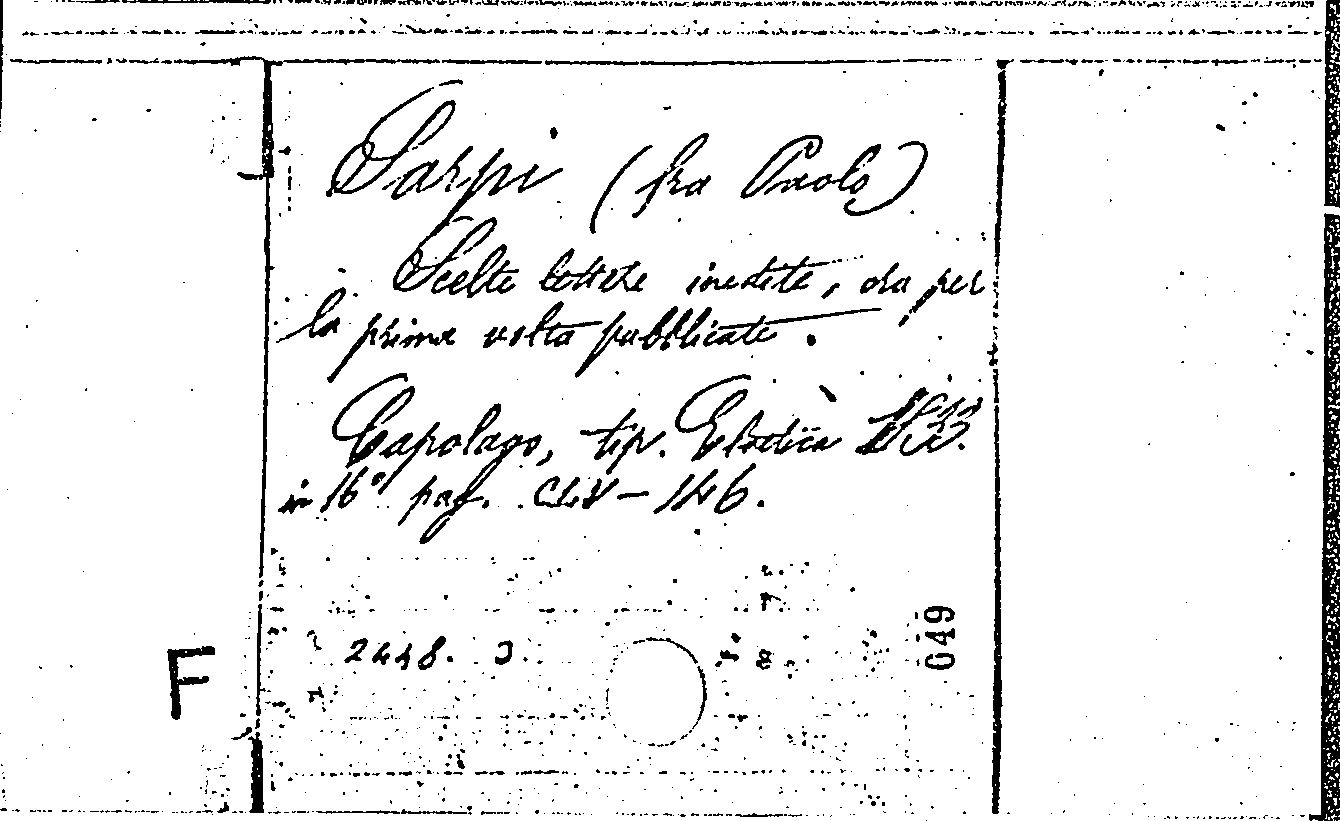 Sarpi (fra Paolo)
Scelte lettere inedite, ora per
la prima volta pubblicate.
Capolago, tip. Elvetica 1833.
in 16° pag. CLIV - 146.
2448. J.
049
F